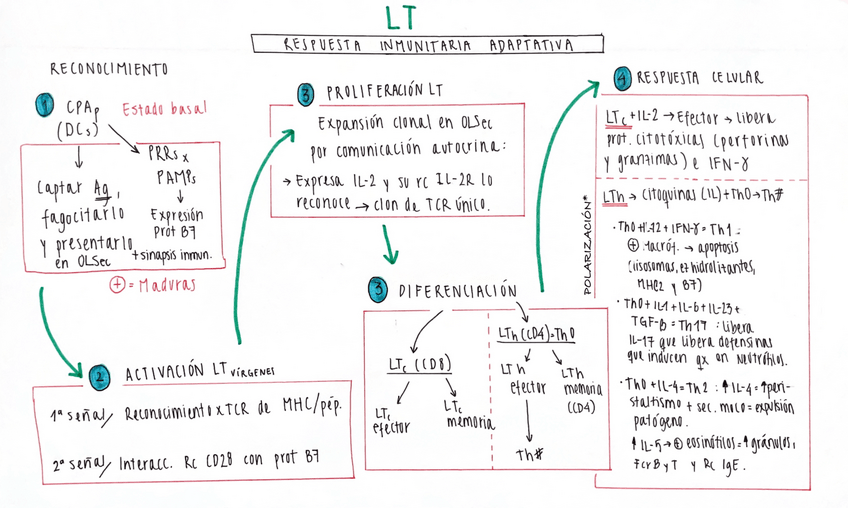 LT
RESPUESTA INMUNITARIA ADAPTATIVA
RECONOCIMIENTO
1 CPAp Estado basal
(DCs)
PRRs x
PAMPs
Captar Ag,
fagocitarlo
y presentarlo
en OLSec
Expresión
Prot B7
+ sinapsis inmun.
⊕ = Maduras
2 ACTIVACIÓN LT VÍRGENES
1ª señal/ Reconocimiento x TCR de MHC/pép.
2ª señal/ Interacc. Rc CD28 con prot B7
3 PROLIFERACIÓN LT
Expansión clonal en OLSec
por comunicación autocrina:
→ Expresa IL-2 y su rc IL-2R lo
reconoce → clon de TCR único.
3 DIFERENCIACIÓN
LTc (CD8)
LTc
efector
LTc
memoria
LTh (CD4) = Th0
LTh
efector
LTh
memoria
(CD4)
Th#
4 RESPUESTA CELULAR
LTc + IL-2 → Efector → libera
prot. citotóxicas (perforinas
y granzimas) e IFN-γ
POLARIZACIÓN*
LTh → Citoquinas (IL) + Th0 → Th#
· Th0 + IL-12 + IFN-γ = Th1 :
⊕ Macróf. → apoptosis
(lisosomas, e+ hidrolizantes,
MHC2 y B7)
· Th0 + IL1 + IL-6 + IL-23 +
TGF-B = Th17 : libera
IL-17 que libera defensinas
que inducen qx en neutrófilos.
· Th0 + IL-4 = Th2 : ↑ IL-4 = ↑ peri-
staltismo + sec. moco = expulsión
patógeno.
↑ IL-5 → ⊕ eosinófilos = ↑ gránulos,
FcrB y T y Rc IgE.